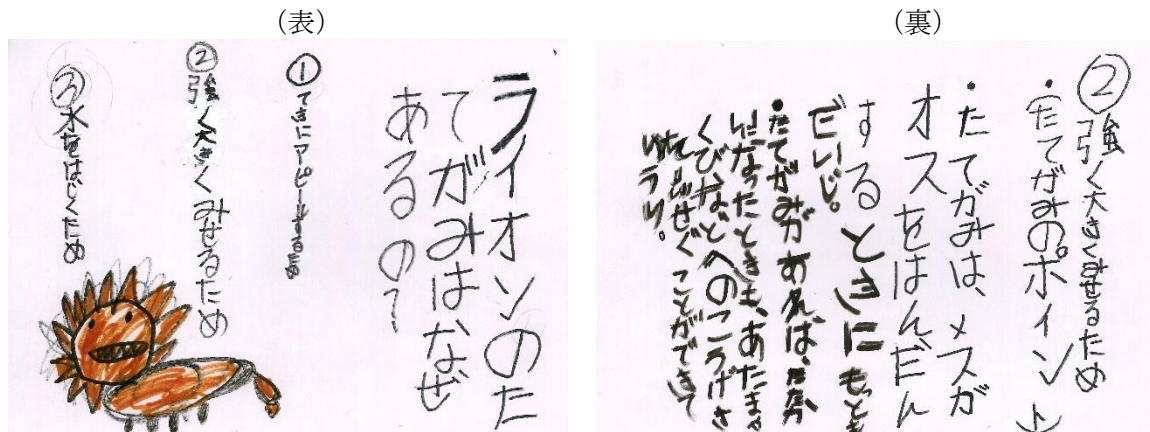 （表）
ライオンのた
てがみはなぜ
あるの？
①てきにアピールするため
②強く大きくみせるため
③水をはじくため
（裏）
②強く大きくみせるため
・(たてがみのポイント)
・たてがみは、メスが
オスをはんだん
するときにもっとも
だいじ。
・たてがみがあれば、たたか
いになったときも、あたまや
くびなどへのこうげき
をふせぐことができて
ゆうり。